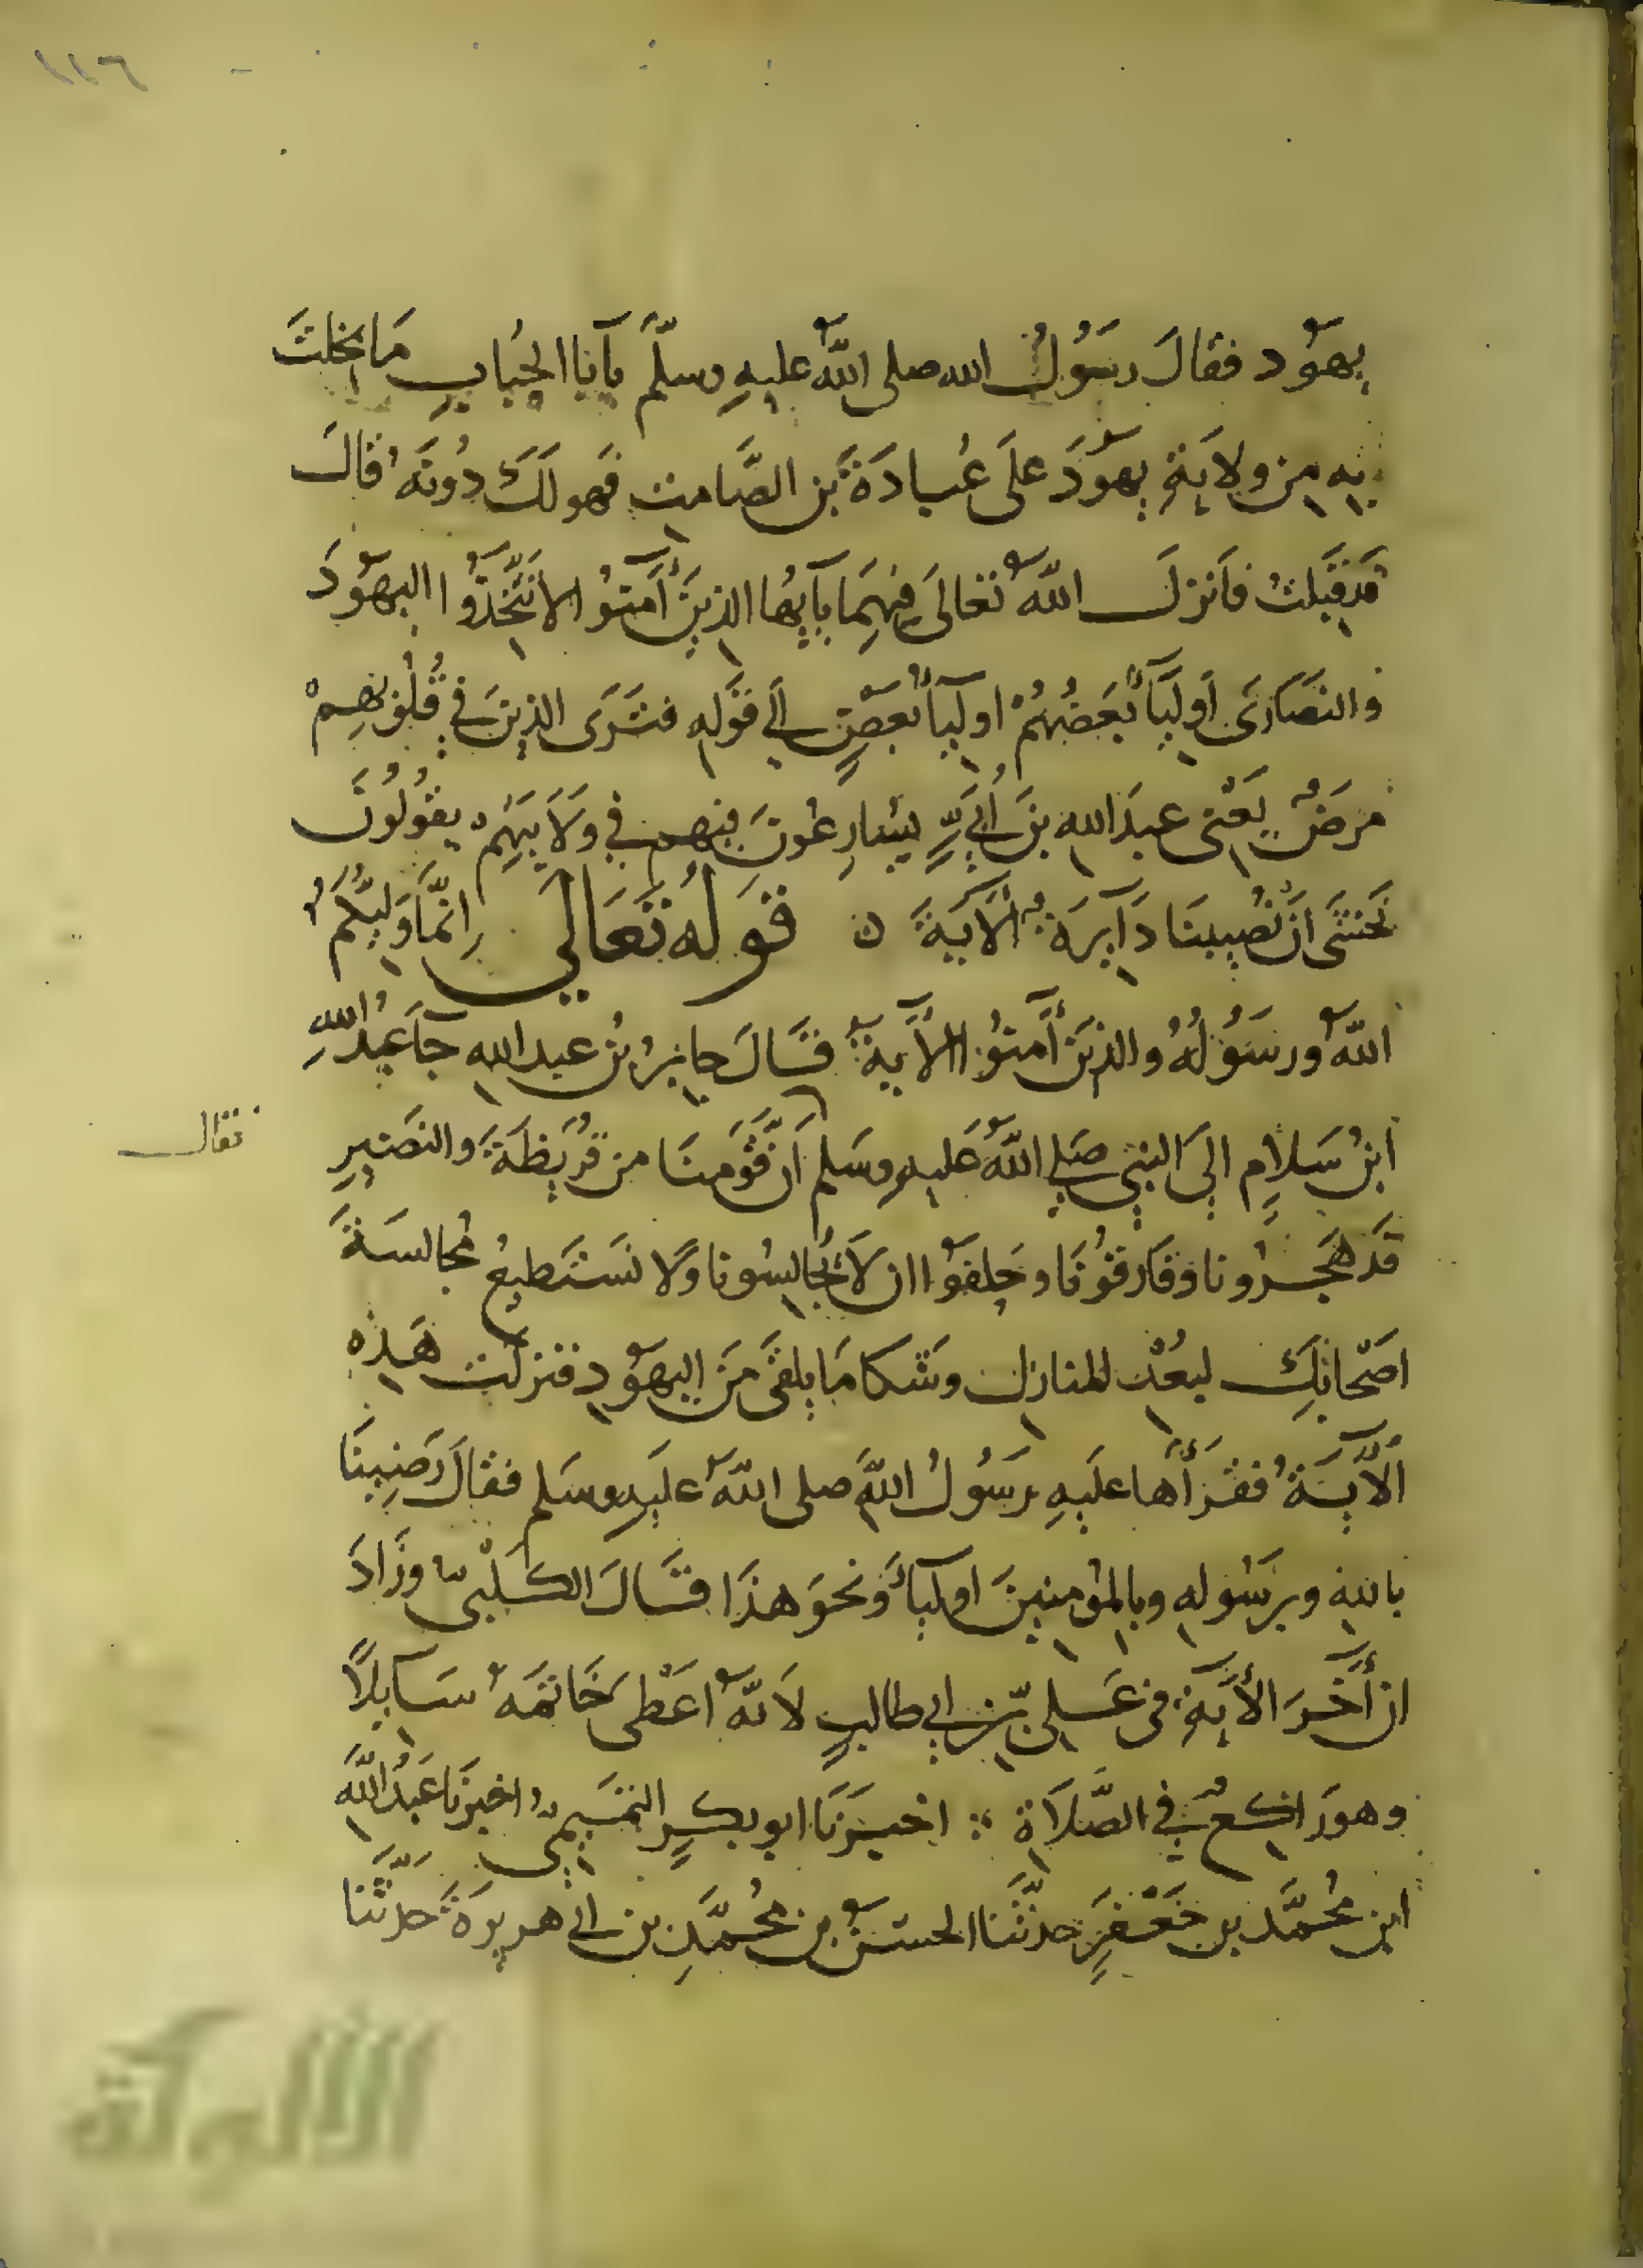 ١١٦
يهود فقالَ رسُولُ الله صلى اللهُ عليهِ وسلَّم يآبا الحُبابِ مَا بخلتَ
بِهِ مِن ولايَةِ يهودَ علَى عُبادَةَ بن الصَّامت فهو لَكَ دُونَهُ قالَ
قد قَبِلتُ فأنزلَ اللهُ تعالَى فِيهِمَا يآيها الذينَ آمنُوا لا تَتَّخِذُوا اليهودَ
والنصَارَى أوليآءَ بَعضُهُمْ اوليآءُ بعضٍ إلى قولِهِ فتَرَى الذينَ في قُلُوبِهِمْ
مرَضٌ يَعْنى عبدَ الله بنَ أُبَيٍّ يُسَارِعُونَ فيهم في ولَايَتِهِمْ يقُولُونَ
نَخشَى أن تُصِيبنَا دَآيرَةٌ الآيَةَ ه قولُه تَعَالَى إنّمَا وَلِيُّكمُ
اللهُ ورسُولُهُ والذينَ آمنُوا الآيةَ قَالَ جابرُ بنُ عبد الله جآ عَبدُ اللهِ
ابنُ سَلامٍ إلَى النبي صَلى اللهُ عَليهِ وسَلم أن قَومنَا من قُرَيظَةَ والنضَيرِ
فقال
قَد هَجَرُونا وفَارقُونَا وحلفوا ان لَا يُجَالِسُونا ولا نَستَطيعُ مُجالسَةَ
اصحَابِكَ لبُعْدِ المنازل وشَكا مَا يلقَى مَن اليهود فنزلَت هَذه
الآيَةُ فقَرَأَهَا علَيهِ رسُولُ اللهِ صلى اللهُ علَيهِ وسَلم فقالَ رَضِينَا
باللهِ وبرَسُولِهِ وبالمُؤمنِينَ اوليآءَ ونحوَ هذَا قَالَ الكَلْبى وزَادَ
ان آخرَ الأيَةِ فى عَلى بنِ ابي طالبٍ لَانّهُ اعْطَى خَاتمَهُ سَآيلًا
وهوَ راكعٌ في الصَّلَاةِ اخبَرَنَا ابو بكرٍ التميمى اخبرَنا عَبدُ اللهِ
ابن مُحمَّد بن جَعْفَرٍ حدثَنا الحسَنُ بن مُحمَّدِ بن ابي هريرةَ حَدثَنا
الألوكة